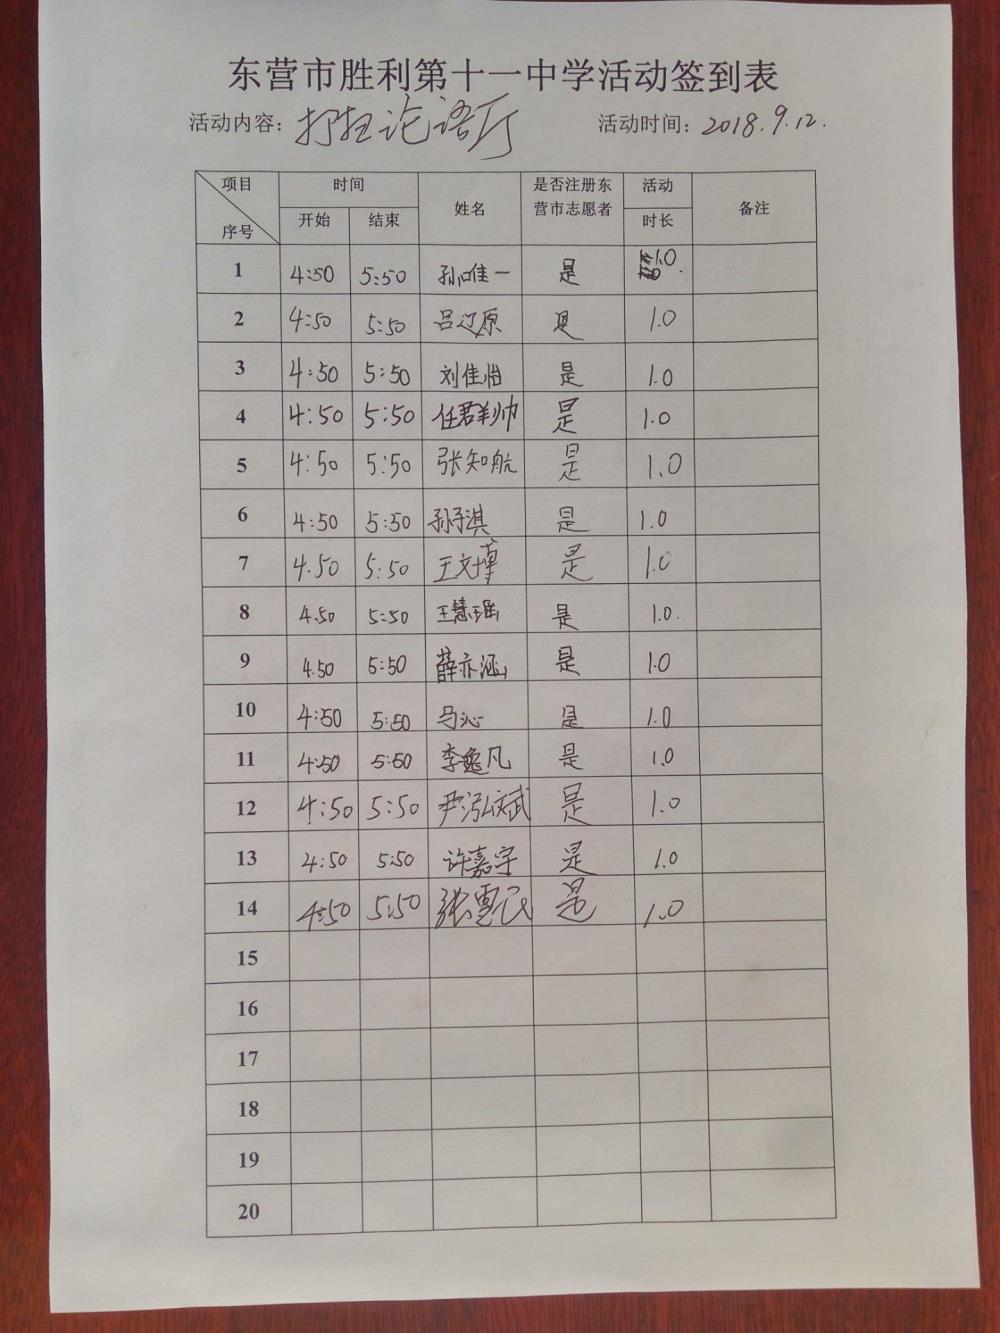 东营市胜利第十一中学活动签到表
活动内容：打扫论语厅 活动时间：2018.9.12.
项目 时间 姓名 是否注册东营市志愿者 活动时长 备注
序号 开始 结束
1 4:50 5:50 孙唯一 是 1.0
2 4:50 5:50 吕辽原 是 1.0
3 4:50 5:50 刘佳怡 是 1.0
4 4:50 5:50 任群帅 是 1.0
5 4:50 5:50 张知航 是 1.0
6 4:50 5:50 孙子淇 是 1.0
7 4.50 5:50 王文瑾 是 1.0
8 4.50 5:50 王慧瑶 是 1.0.
9 4.50 5:50 薛亦涵 是 1.0
10 4:50 5:50 马沁 是 1.0
11 4:50 5:50 李逸凡 是 1.0
12 4:50 5:50 尹泓斌 是 1.0
13 4:50 5:50 许嘉宇 是 1.0
14 4:50 5:50 张 是 1.0
15
16
17
18
19
20